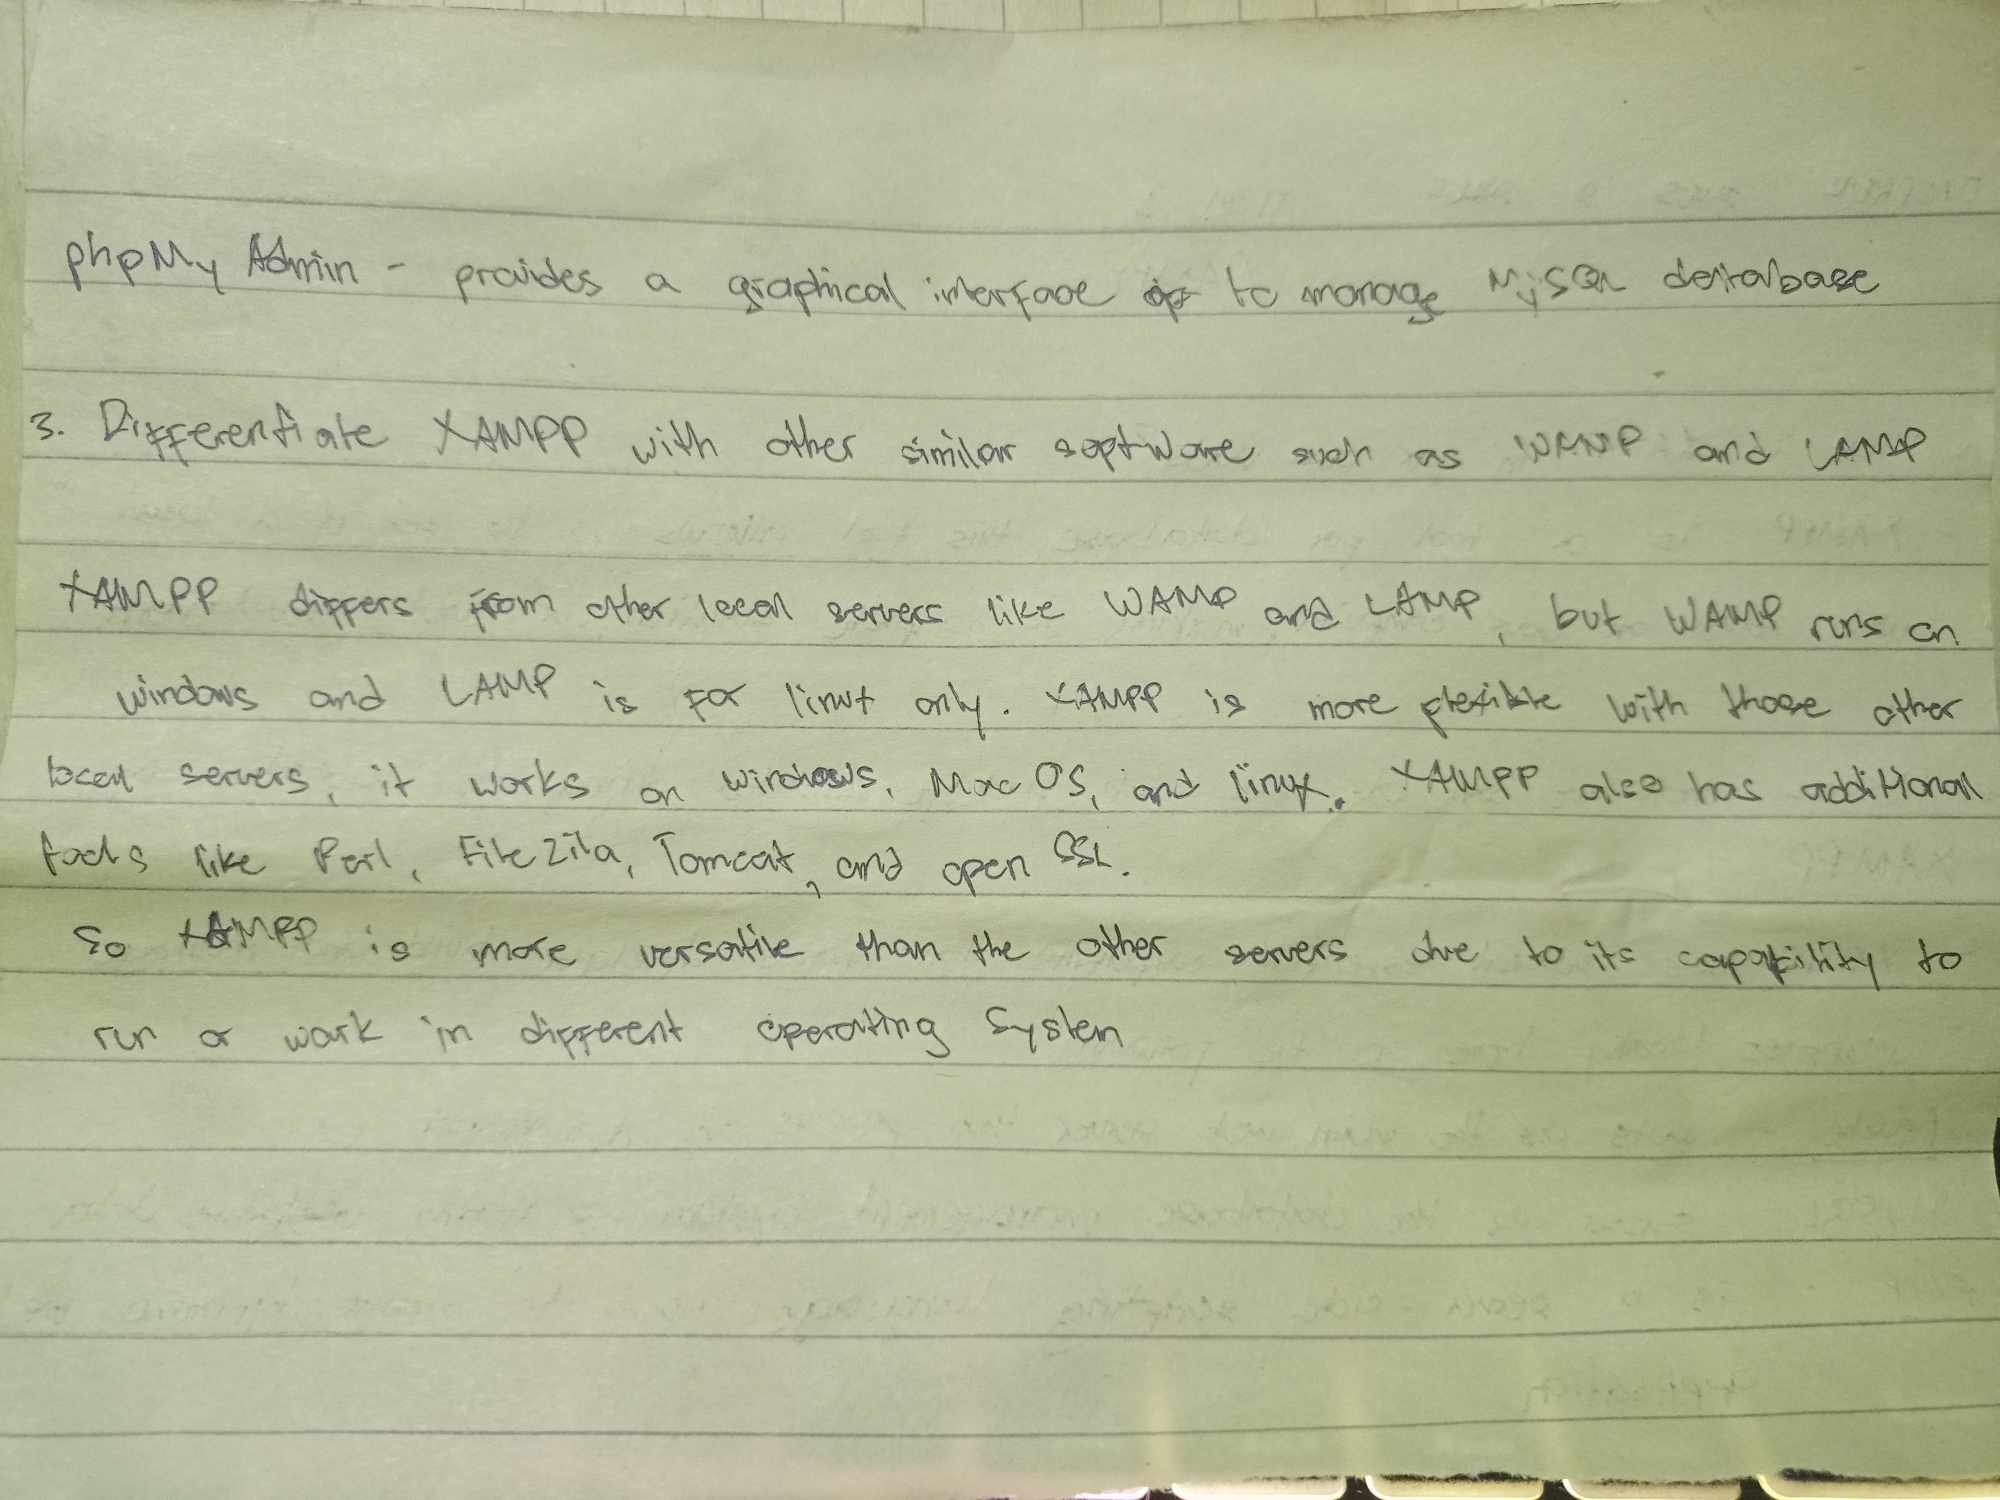 phpMy Admin - provides a graphical interface to manage MySQL database
3. Differentiate XAMPP with other similar software such as WAMP and LAMP
XAMPP differs from other local servers like WAMP and LAMP, but WAMP runs on
windows and LAMP is for linux only. XAMPP is more flexible with those other
local servers, it works on windows, Mac OS, and linux. XAMPP also has additional
tools like Perl, File Zilla, Tomcat, and open SSL.
So XAMPP is more versatile than the other servers due to its capability to
run or work in different operating system